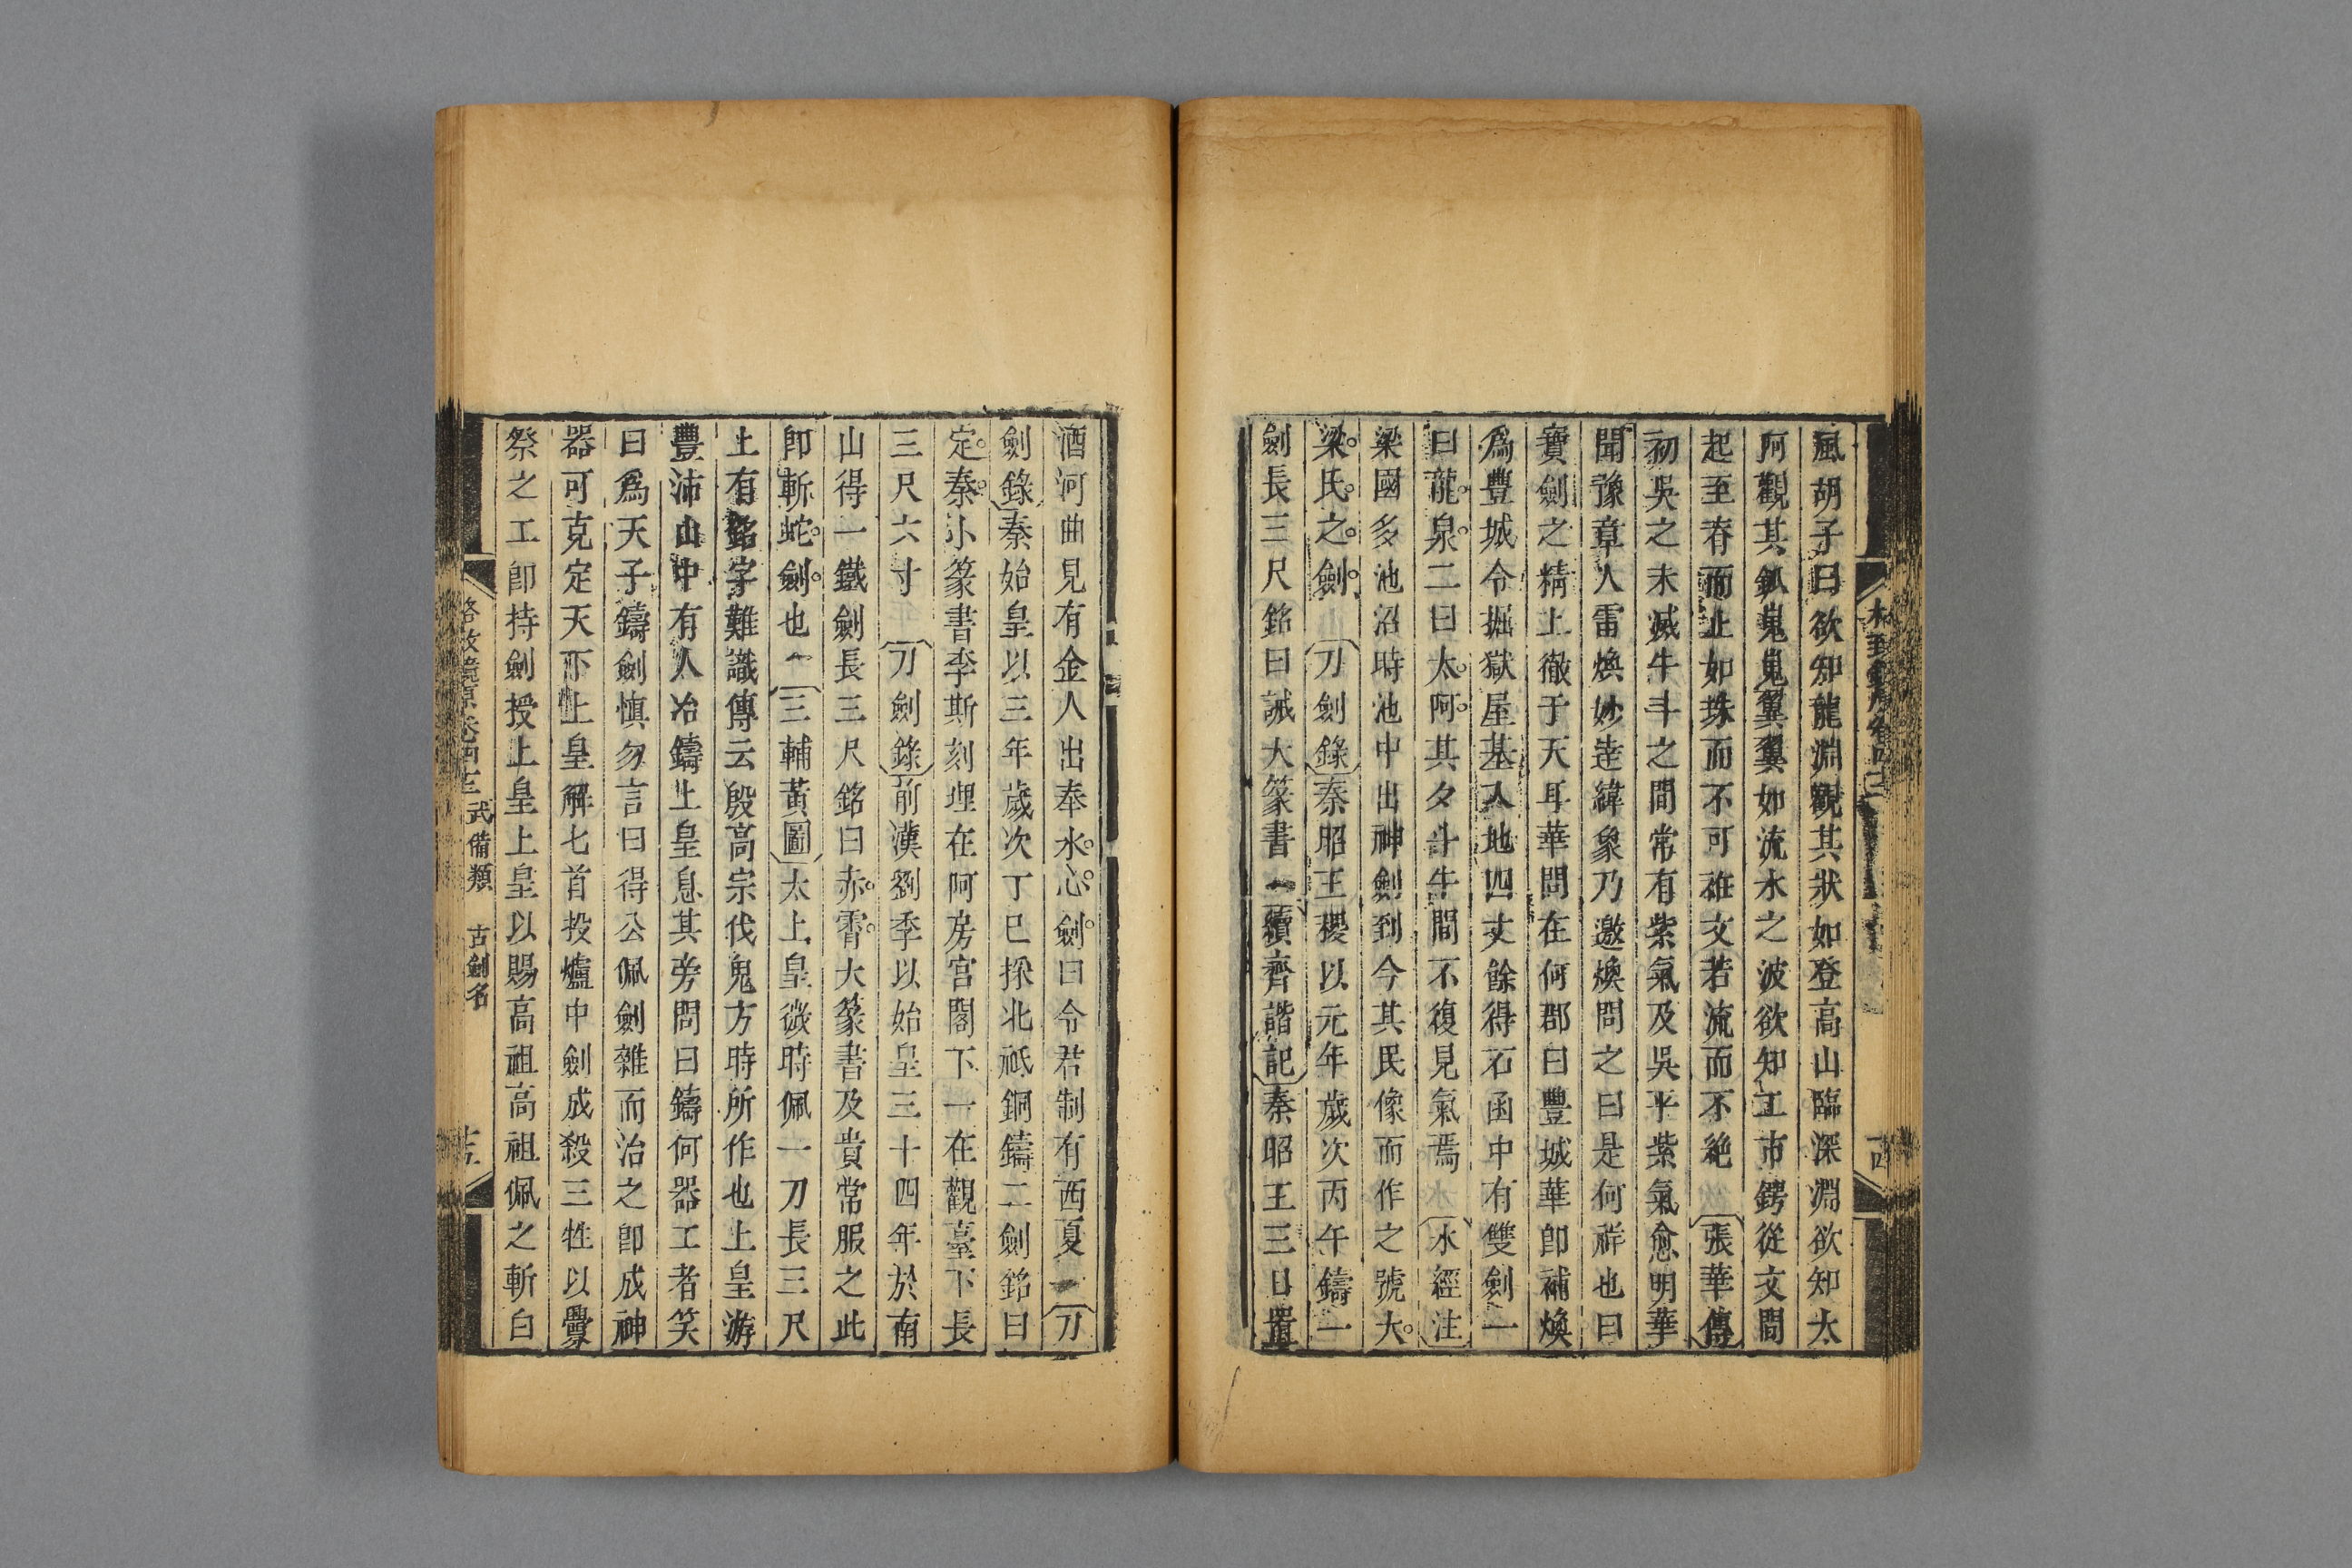 風胡子曰欲知龍淵觀其狀如登高山臨深淵欲知太
阿觀其釽巍巍翼翼如流水之波欲知工市鍔從文間
起至脊而止如珠而不可衽文若流而不絶 張華傳
初吳之未滅牛斗之間常有紫氣及吳平紫氣愈明華
聞豫章人雷煥妙達緯象乃邀煥問之曰是何祥也曰
寶劍之精上徹于天耳華問在何郡曰豐城華卽補煥
爲豐城令掘獄屋基入地四丈餘得石函中有雙劍一
曰龍泉二曰太阿其夕斗牛間不復見氣焉 水經注
梁國多池沼時池中出神劍到今其民像而作之號大
梁氏之劍 刀劍錄秦昭王稷以元年歲次丙午鑄一
劍長三尺銘曰誡大篆書 續齊諧記秦昭王三日置
酒河曲見有金人出奉水心劍曰令君制有西夏 刀
劍錄秦始皇以三年歲次丁巳採北祗銅鑄二劍銘曰
定秦小篆書李斯刻埋在阿房宮閣下一在觀臺下長
三尺六寸 刀劍錄前漢劉季以始皇三十四年於南
山得一鐵劍長三尺銘曰赤霄大篆書及貴常服之此
卽斬蛇劍也 三輔黃圖太上皇微時佩一刀長三尺
上有銘字難識傳云殷高宗伐鬼方時所作也上皇游
豐沛山中有人冶鑄上皇息其旁問曰鑄何器工者笑
曰爲天子鑄劍愼勿言曰得公佩劍雜而治之卽成神
器可克定天下上皇解匕首投爐中劍成殺三牲以釁
祭之工卽持劍授上皇上皇以賜高祖高祖佩之斬白
格致鏡原卷四十二 武備類 古劍名